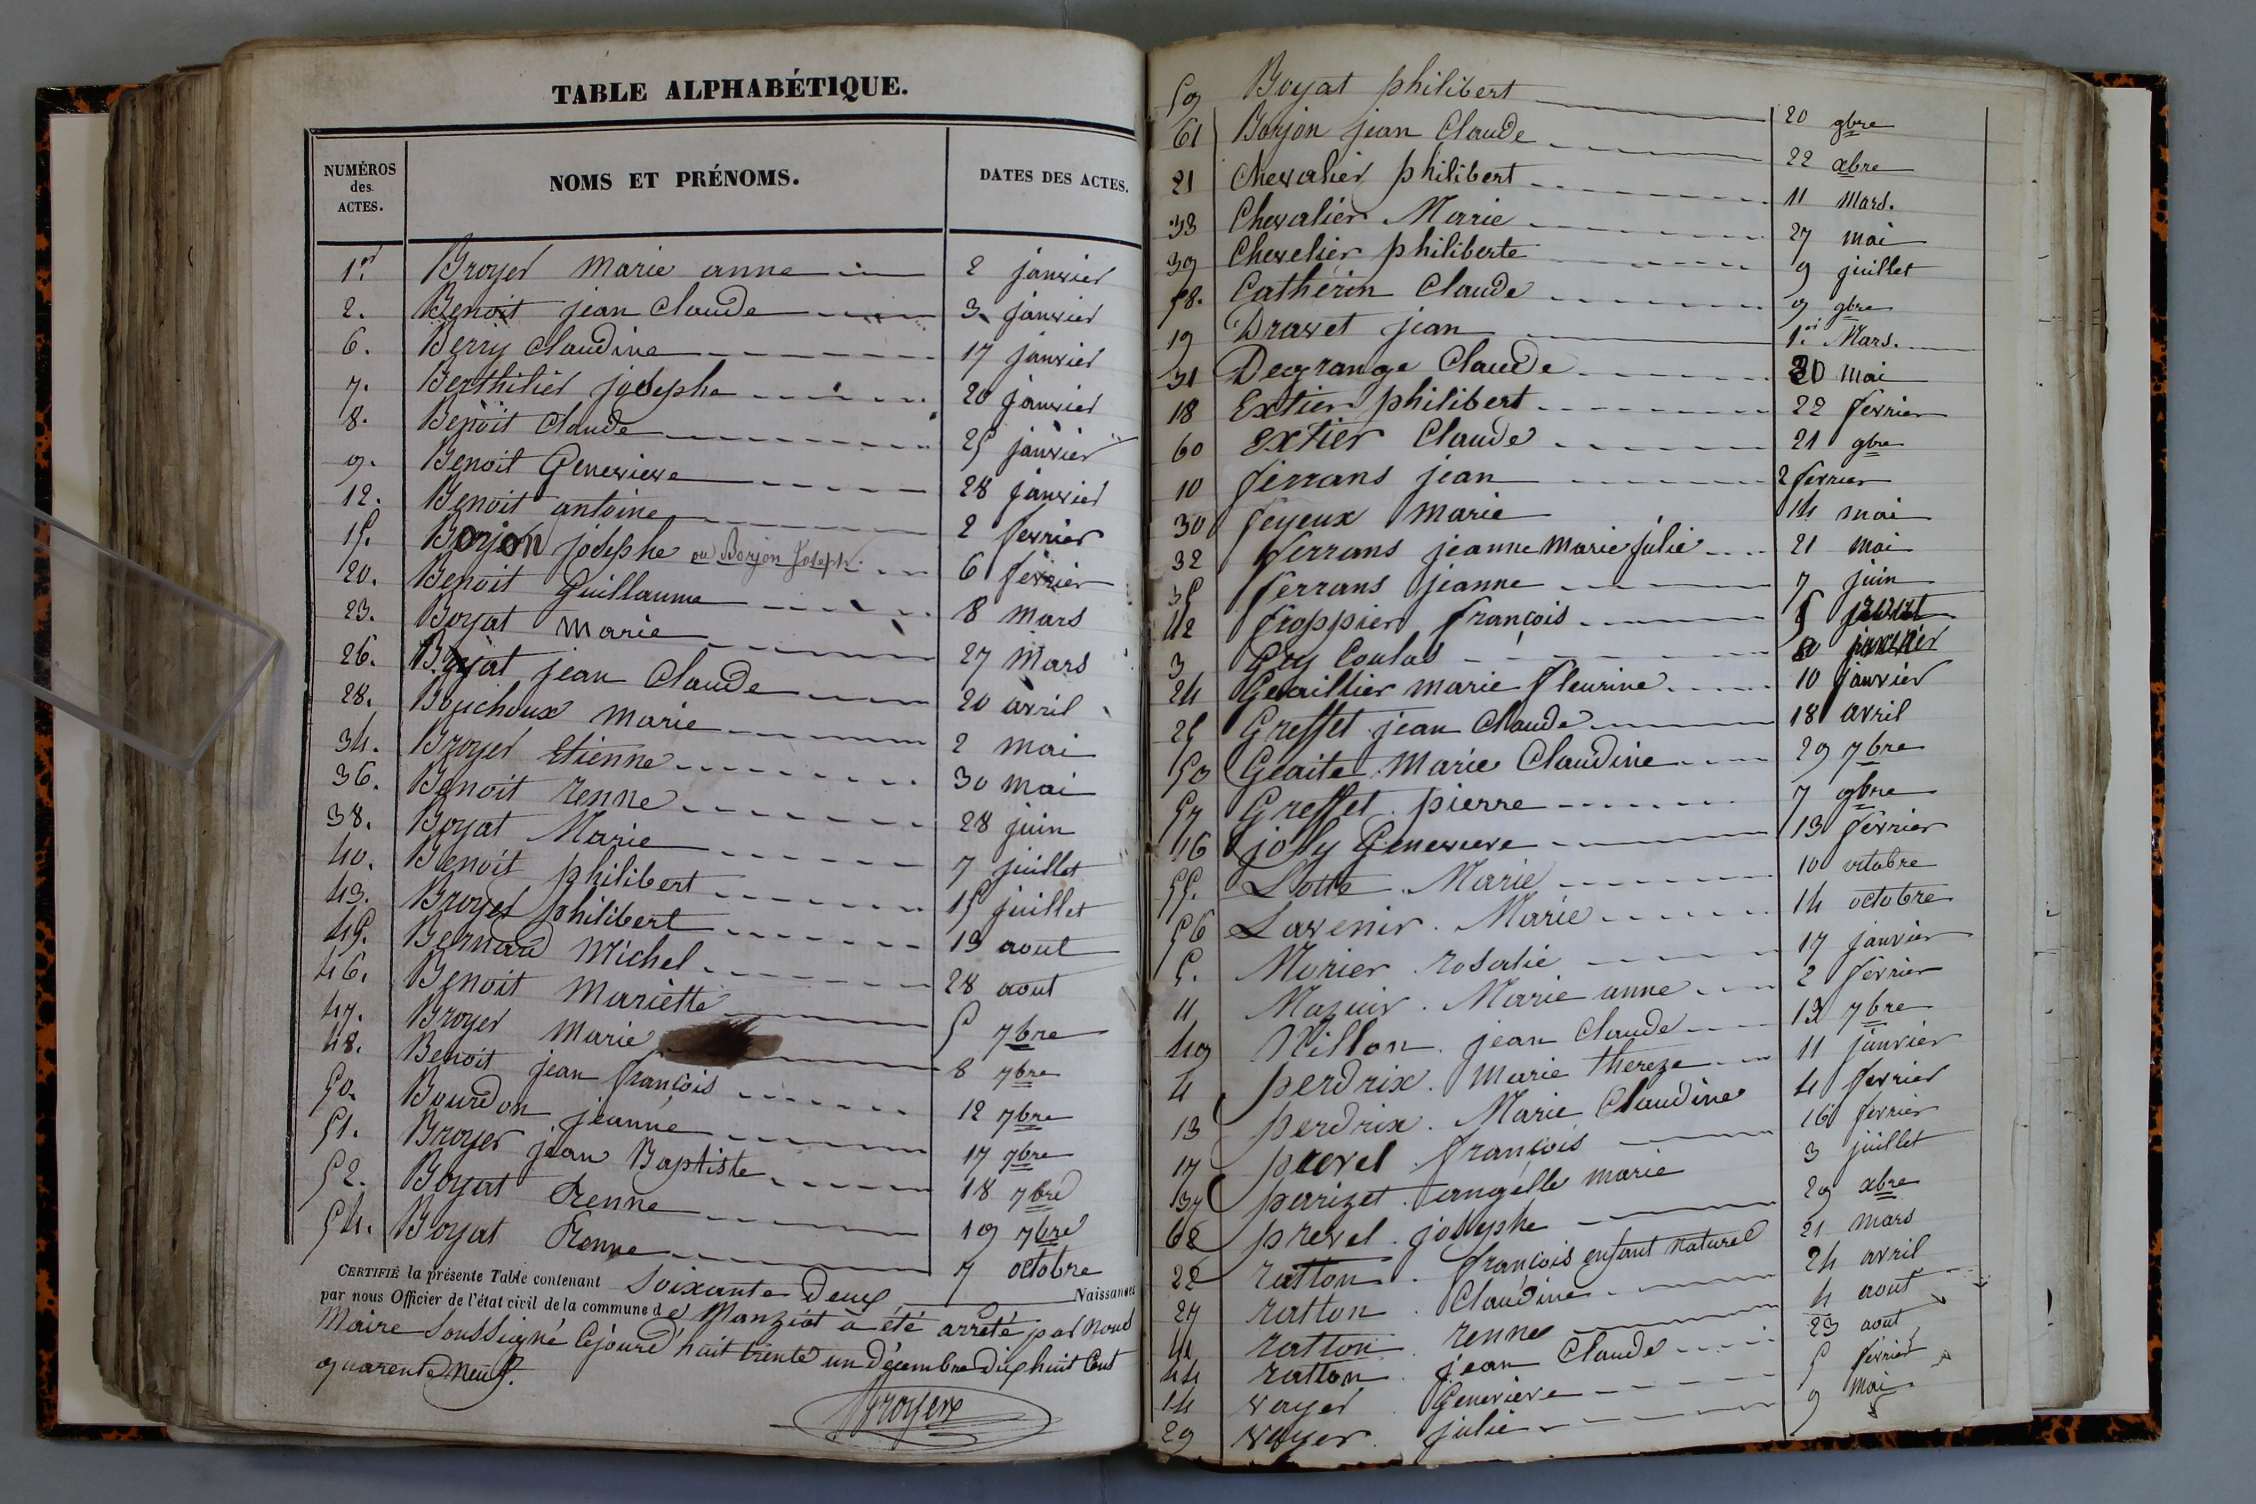 TABLE ALPHABÉTIQUE.
NUMÉROS des ACTES. NOMS ET PRÉNOMS. DATES DES ACTES.
1er Broyer Marie anne 2 janvier
2. Benoit jean Claude 3 janvier
6. Berry Claudine 17 janvier
7. Berthilier josephe 20 janvier
8. Benoit Claude 25 janvier
9. Benoit Genevieve 28 janvier
12. Benoit antoine 2 fevrier
15. Borjon josephe ou Borjon Joseph 6 fevrier
20. Benoit Guillaume 8 mars
23. Boyat marie 27 Mars
26. Boyat jean Claude 20 avril
28. Bouchoux marie 2 mai
34. Broyer Etienne 30 mai
36. Benoit renne 28 juin
38. Boyat Marie 7 juillet
40. Benoit philibert 15 juillet
43. Broyer philibert 13 aout
45. Bernard Michel 28 aout
46. Benoit Mariette 5 7bre
47. Broyer Marie 8 7bre
48. Benoit jean françois 12 7bre
50. Bourdon jeanne 17 7bre
51. Broyer jean Baptiste 18 7bre
52. Boyat Renne 19 7bre
54. Boyat Renne 7 octobre
CERTIFIÉ la présente Table contenant Soixante Deux Naissances
par nous Officier de l'état civil de la commune de Manziat à été arrété par Nous
Maire Soussigné Cejourd'huit trente un Décembre Dix huit Cent
quarente Neuf.
Broyer
59 Boyat philibert 20 9bre
61 Borjon jean Claude 22 xbre
21 Chevalier philibert 11 Mars.
33 Chevalier Marie 27 mai
39 Chevelier philiberte 9 juillet
58. Catherin Claude 9 9bre
19 Dravet jean 1er Mars.
31 Degrange Claude 20 mai
18 Extier philibert 22 fevrier
60 Extier Claude 21 9bre
10 ferrans jean 2 fevrier
30 feyeux Marie 14 mai
32 ferrans jeanne Marie julie 21 mai
35 ferrans jeanne 7 juin
42 froppier françois 5
3 Guy Coulas janvier
24 Geaillier marie fleurine 10 janvier
25 Greffet jean Claude 18 avril
53 Geaite Marie Claudine 29 7bre
57 Greffet pierre 7 9bre
16 joly Genevieve 13 fevrier
55. Marie 10 octobre
56 Lavenir. Marie 14 octobre
5. Morier rosalie 17 janvier
11 Mazuir. Marie anne 2 fevrier
49 Nillon. jean Claude 13 7bre
4 perdrix. Marie thereze 11 janvier
13 perdrix. Marie Claudine 4 fevrier
17 prevel françois 16 fevrier
37 parizet. angélle marie 3 juillet
62 prevel. josephe 29 xbre
22 ratton. françois enfant naturel 21 mars
27 ratton. Claudine 24 avril
41 ratton. renne 4 aout
44 ratton. jean Claude 23 aout
14 voyer Genevieve 5 fevrier
29 voyer. julie 9 mai